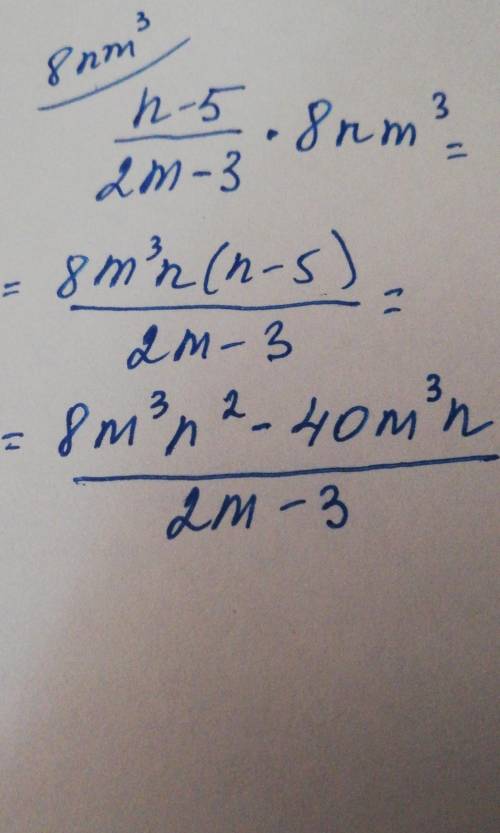 8nm³
n-5
2m-3 · 8nm³ =
= 8m³n(n-5) =
2m-3
= 8m³n² - 40m³n
2m-3